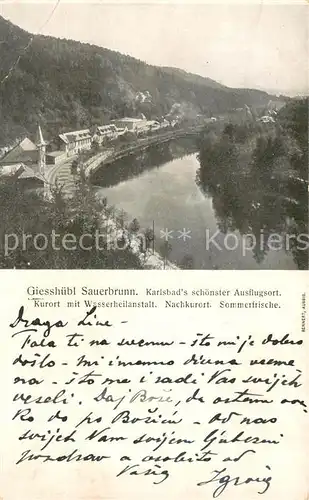 Giesshübl Sauerbrunn. Karlsbad's schönster Ausflugsort.
Kurort mit Wasserheilanstalt. Nachkurort. Sommerfrische.
Draga Line –
Fala ti na svemu – što mi je dobro
došlo – mi imamo divna vreme
na – što me i radi Vas svijeh
veseli. Daj Bože, da ostane ova
ko do po Božiću – od nas
svijeh Vam svijem ljubezni
pozdrav a osobito od
Vašeg